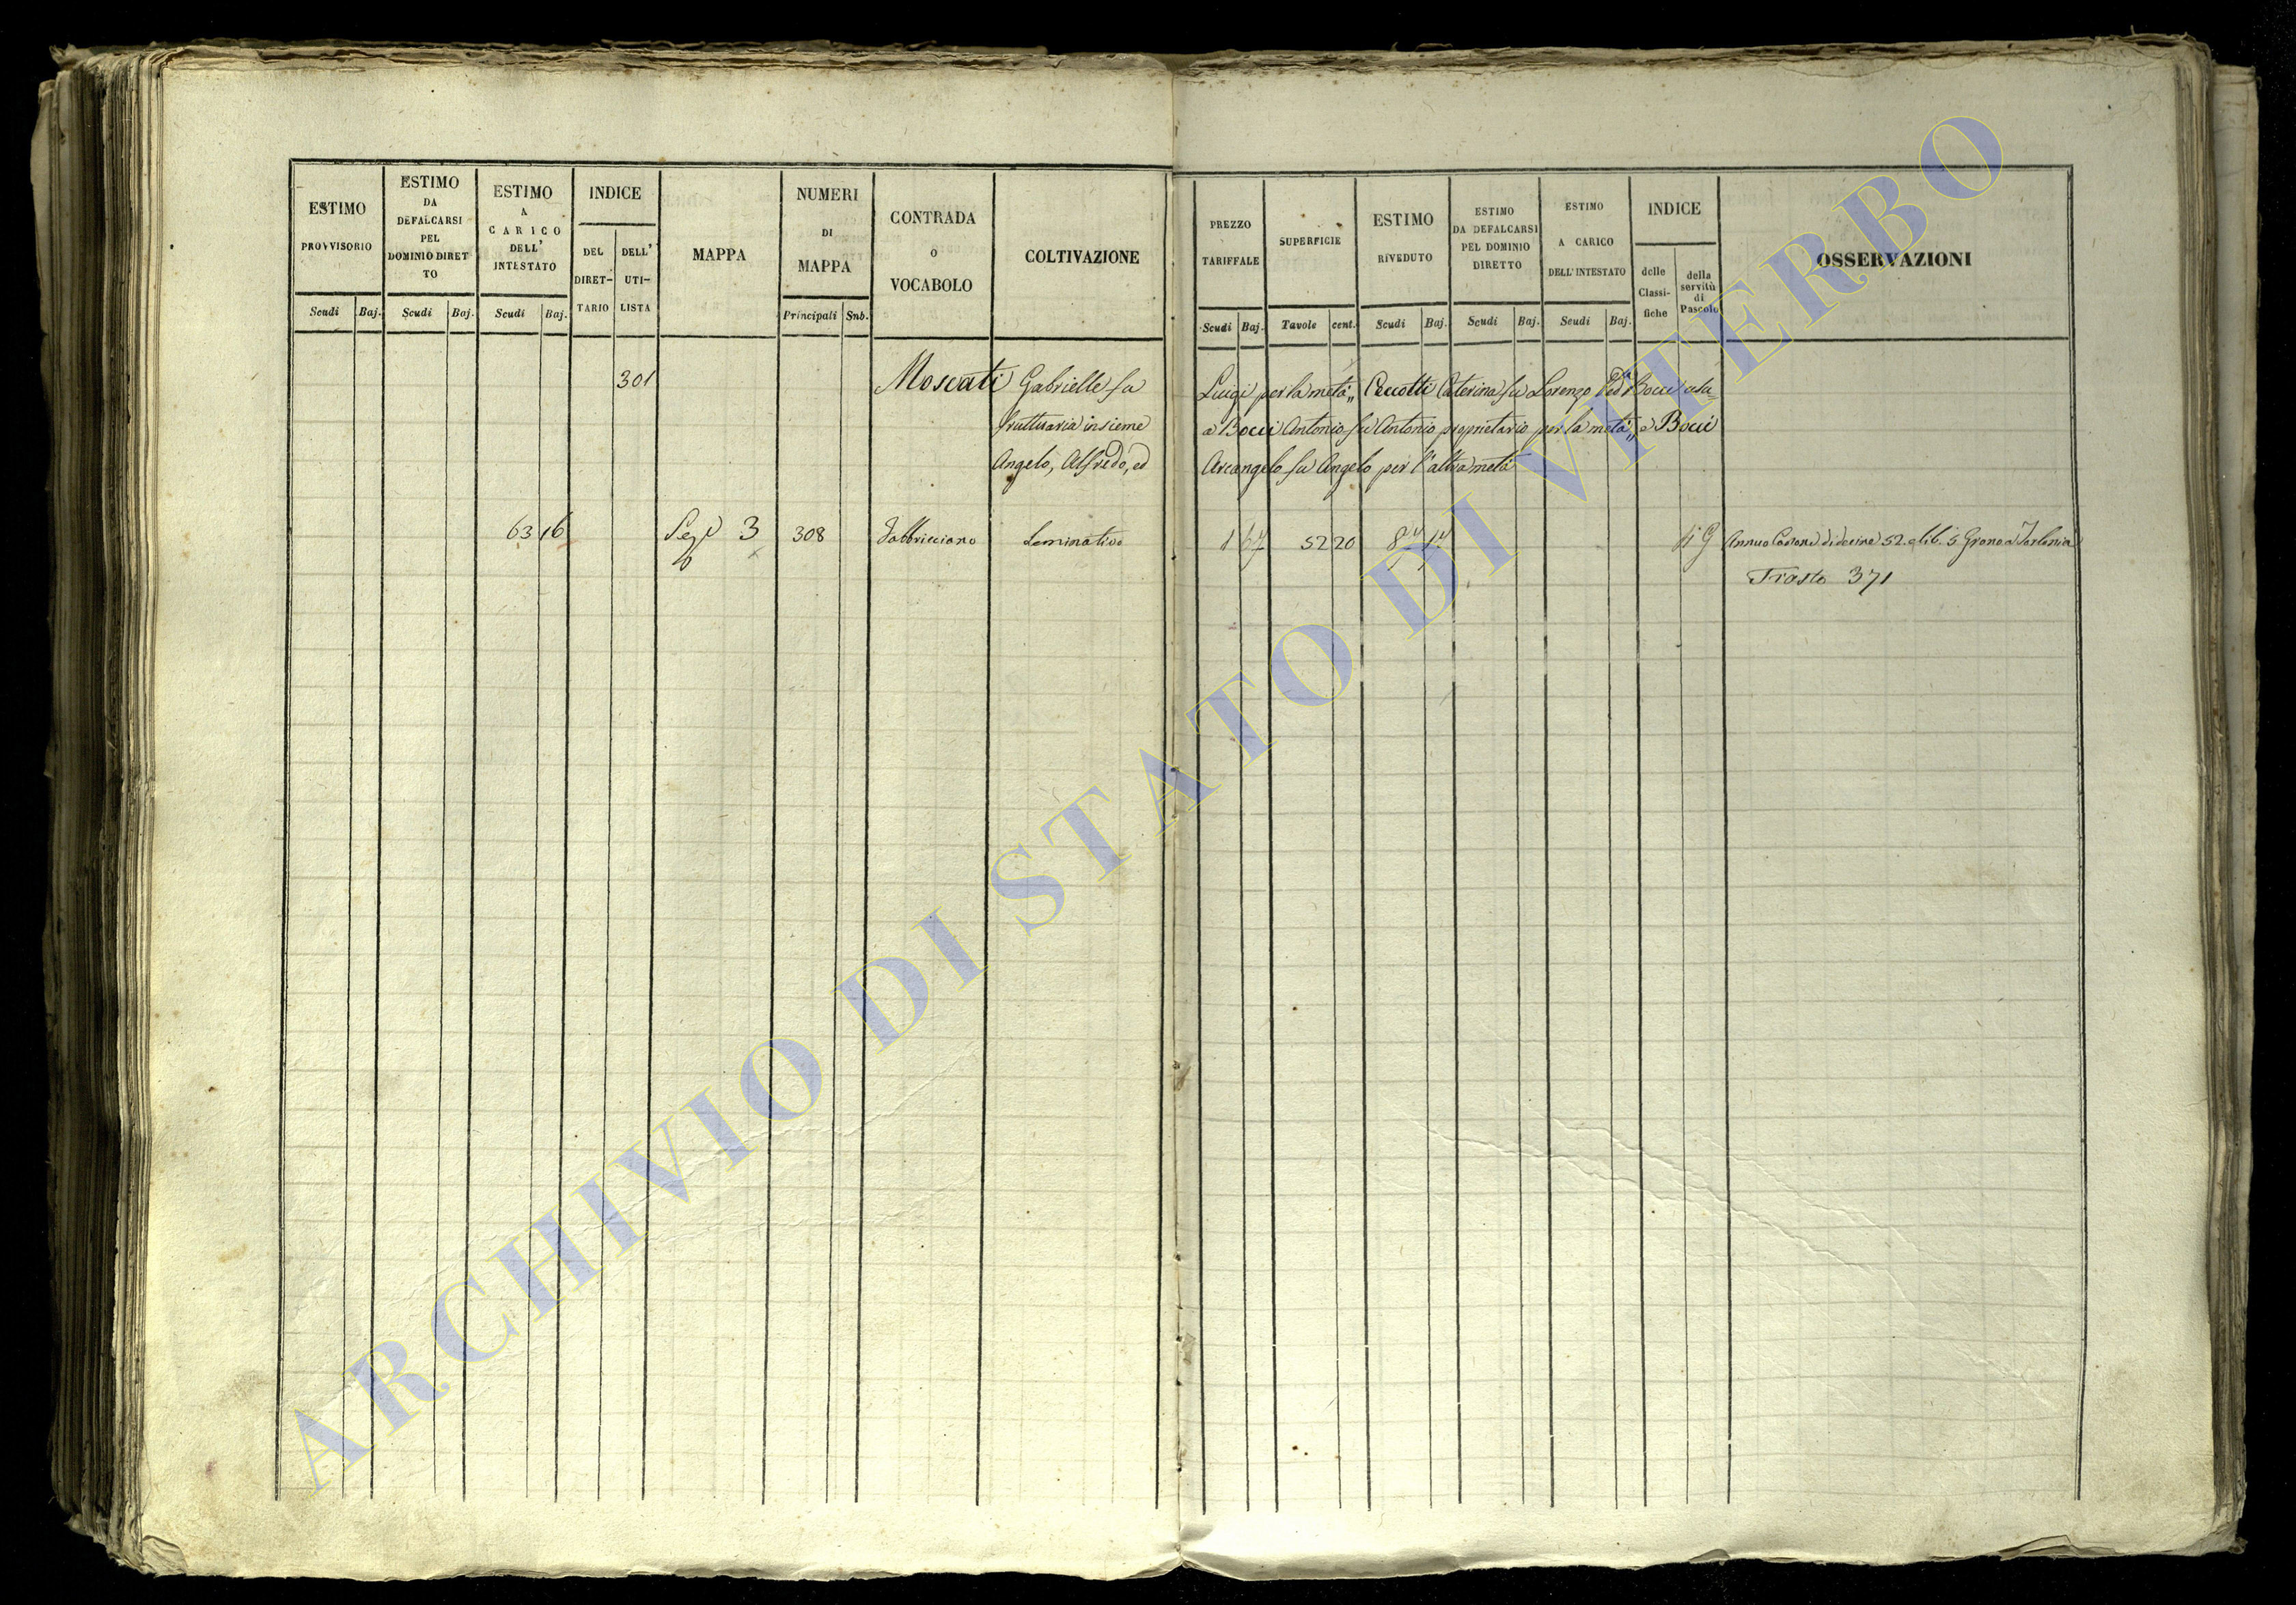 ESTIMO PROVVISORIO
ESTIMO DA DEFALCARSI PEL DOMINIO DIRETTO
ESTIMO A CARICO DELL' INTESTATO
INDICE
DEL DIRET-TARIO
DELL' UTI-LISTA
MAPPA
NUMERI DI MAPPA
CONTRADA o VOCABOLO
COLTIVAZIONE
PREZZO TARIFFALE
SUPERFICIE
ESTIMO RIVEDUTO
ESTIMO DA DEFALCARSI PEL DOMINIO DIRETTO
ESTIMO A CARICO DELL' INTESTATO
INDICE
delle Classi-fiche
della servitù di Pascolo
OSSERVAZIONI
Scudi Baj. Scudi Baj. Scudi Baj. Principali Snb. Scudi Baj. Tavole cent. Scudi Baj. Scudi Baj. Scudi Baj.
301 Moscati Gabrielle fu Luigi per la metà,, Ceccotti Caterina fu Lorenzo Ved.a Bocci usu-
fruttuaria insieme a Bocci Antonio fu Antonio proprietario per la metà,, e Bocci
Angelo, Alfredo, ed Arcangelo fu Angelo per l'altra metà
63 16 Segue 3 308 Fabbricciano Seminativo 1 67 52 20 87 17 49 Annuo Canone di decine 52. e lib. 5 Grano a Torlonia
Trasto 371
ARCHIVIO DI STATO DI VITERBO